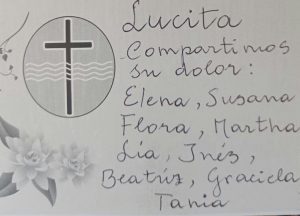 Lucita
Compartimos
su dolor:
Elena, Susana
Flora, Martha
Lía, Inés,
Beatriz, Graciela
Tania